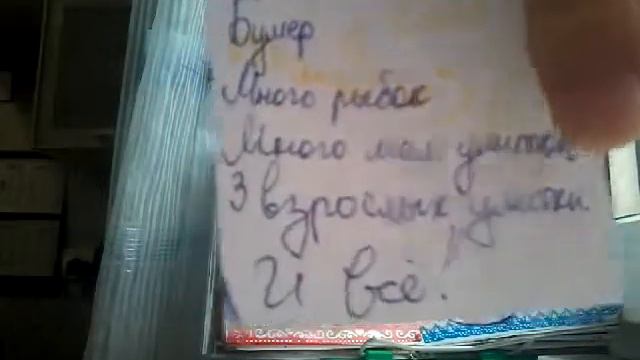 Бумер
Много рыбок
Много мал. улиток
3 взрослых улитки.
И всё!